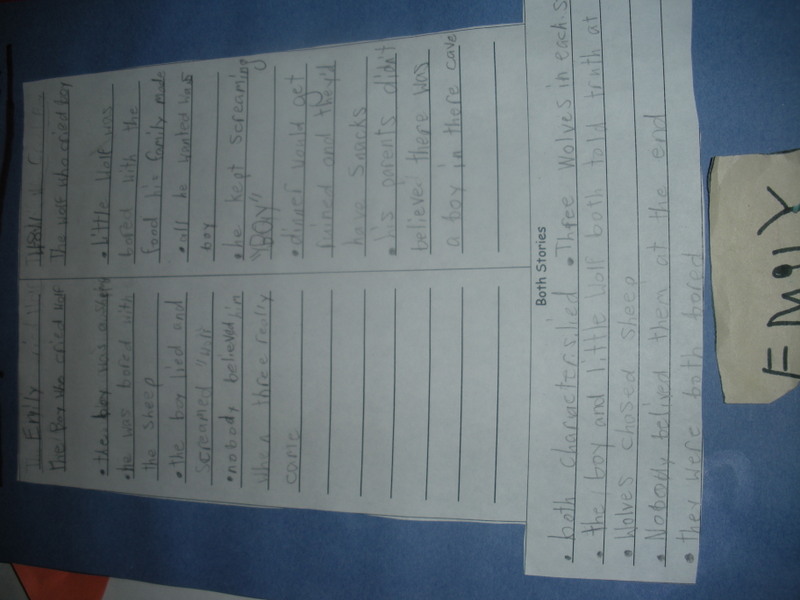 Emily
The Boy who cried wolf
• the boy was a
• he was bored with
the sheep
• the boy lied and
screamed "wolf
• nobody believed him
when three really
come
The Wolf who cried boy
• Little Wolf was
bored with the
food his family made
• all he wanted was
boy
• he kept screaming
"BOY"
• dinner would get
ruined and they'd
have snacks
• his parents didn't
believed there was
a boy in there cave
Both Stories
• both characters lied • Three Wolves in each s
• the boy and little Wolf both told truth at
• Wolves chased sheep
• Nobody belived them at the end
• they were both bored
EMilY